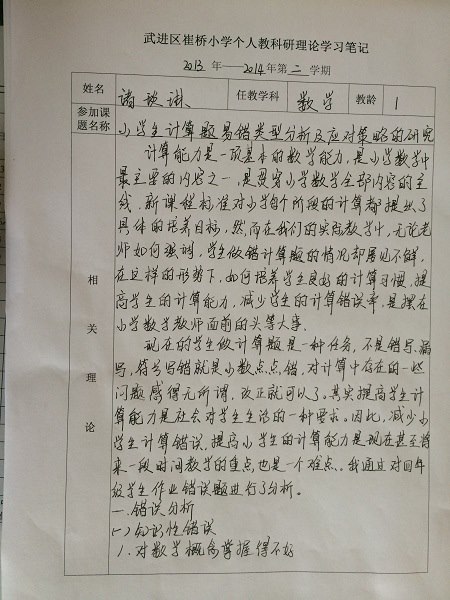 武进区崔桥小学个人教科研理论学习笔记
2013 年——2014年第 二 学期
姓名 诸 任教学科 数学 教龄 1
参加课题名称 小学生计算题易错类型分析及应对策略的研究
相关理论
计算能力是一项基本的数学能力,是小学数学中
最主要的内容之一,是贯穿小学数学全部内容的主
线。新课程标准对小学每个阶段的计算都提出了
具体的培养目标,然而在我们的实际教学中,无论老
师如何强调,学生做错计算题的情况却屡见不鲜。
在这样的形势下,如何培养学生良好的计算习惯,提
高学生的计算能力,减少学生的计算错误率,是摆在
小学数学教师面前的头等大事。
现在的学生做计算题是一种任务,不是错写、漏
写,符号写错就是小数点点错,对计算中存在的一些
问题感得无所谓,改正就可以了。其实提高学生计
算能力是社会对学生生活的一种要求。因此,减少小
学生计算错误,提高小学生的计算能力是现在甚至将
来一段时间教学的重点,也是一个难点。我通过对四年
级学生作业错误题进行了分析。
一、错误分析
(一)知识性错误
1、对数学概念掌握得不好